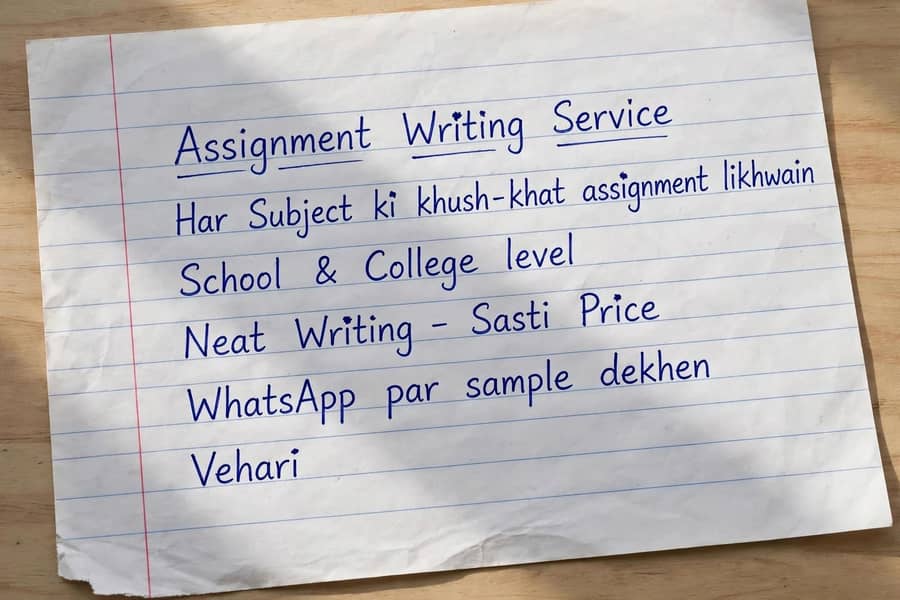 Assignment Writing Service
Har Subject ki khush-khat assignment likhwain
School & College level
Neat Writing - Sasti Price
WhatsApp par sample dekhen
Vehari